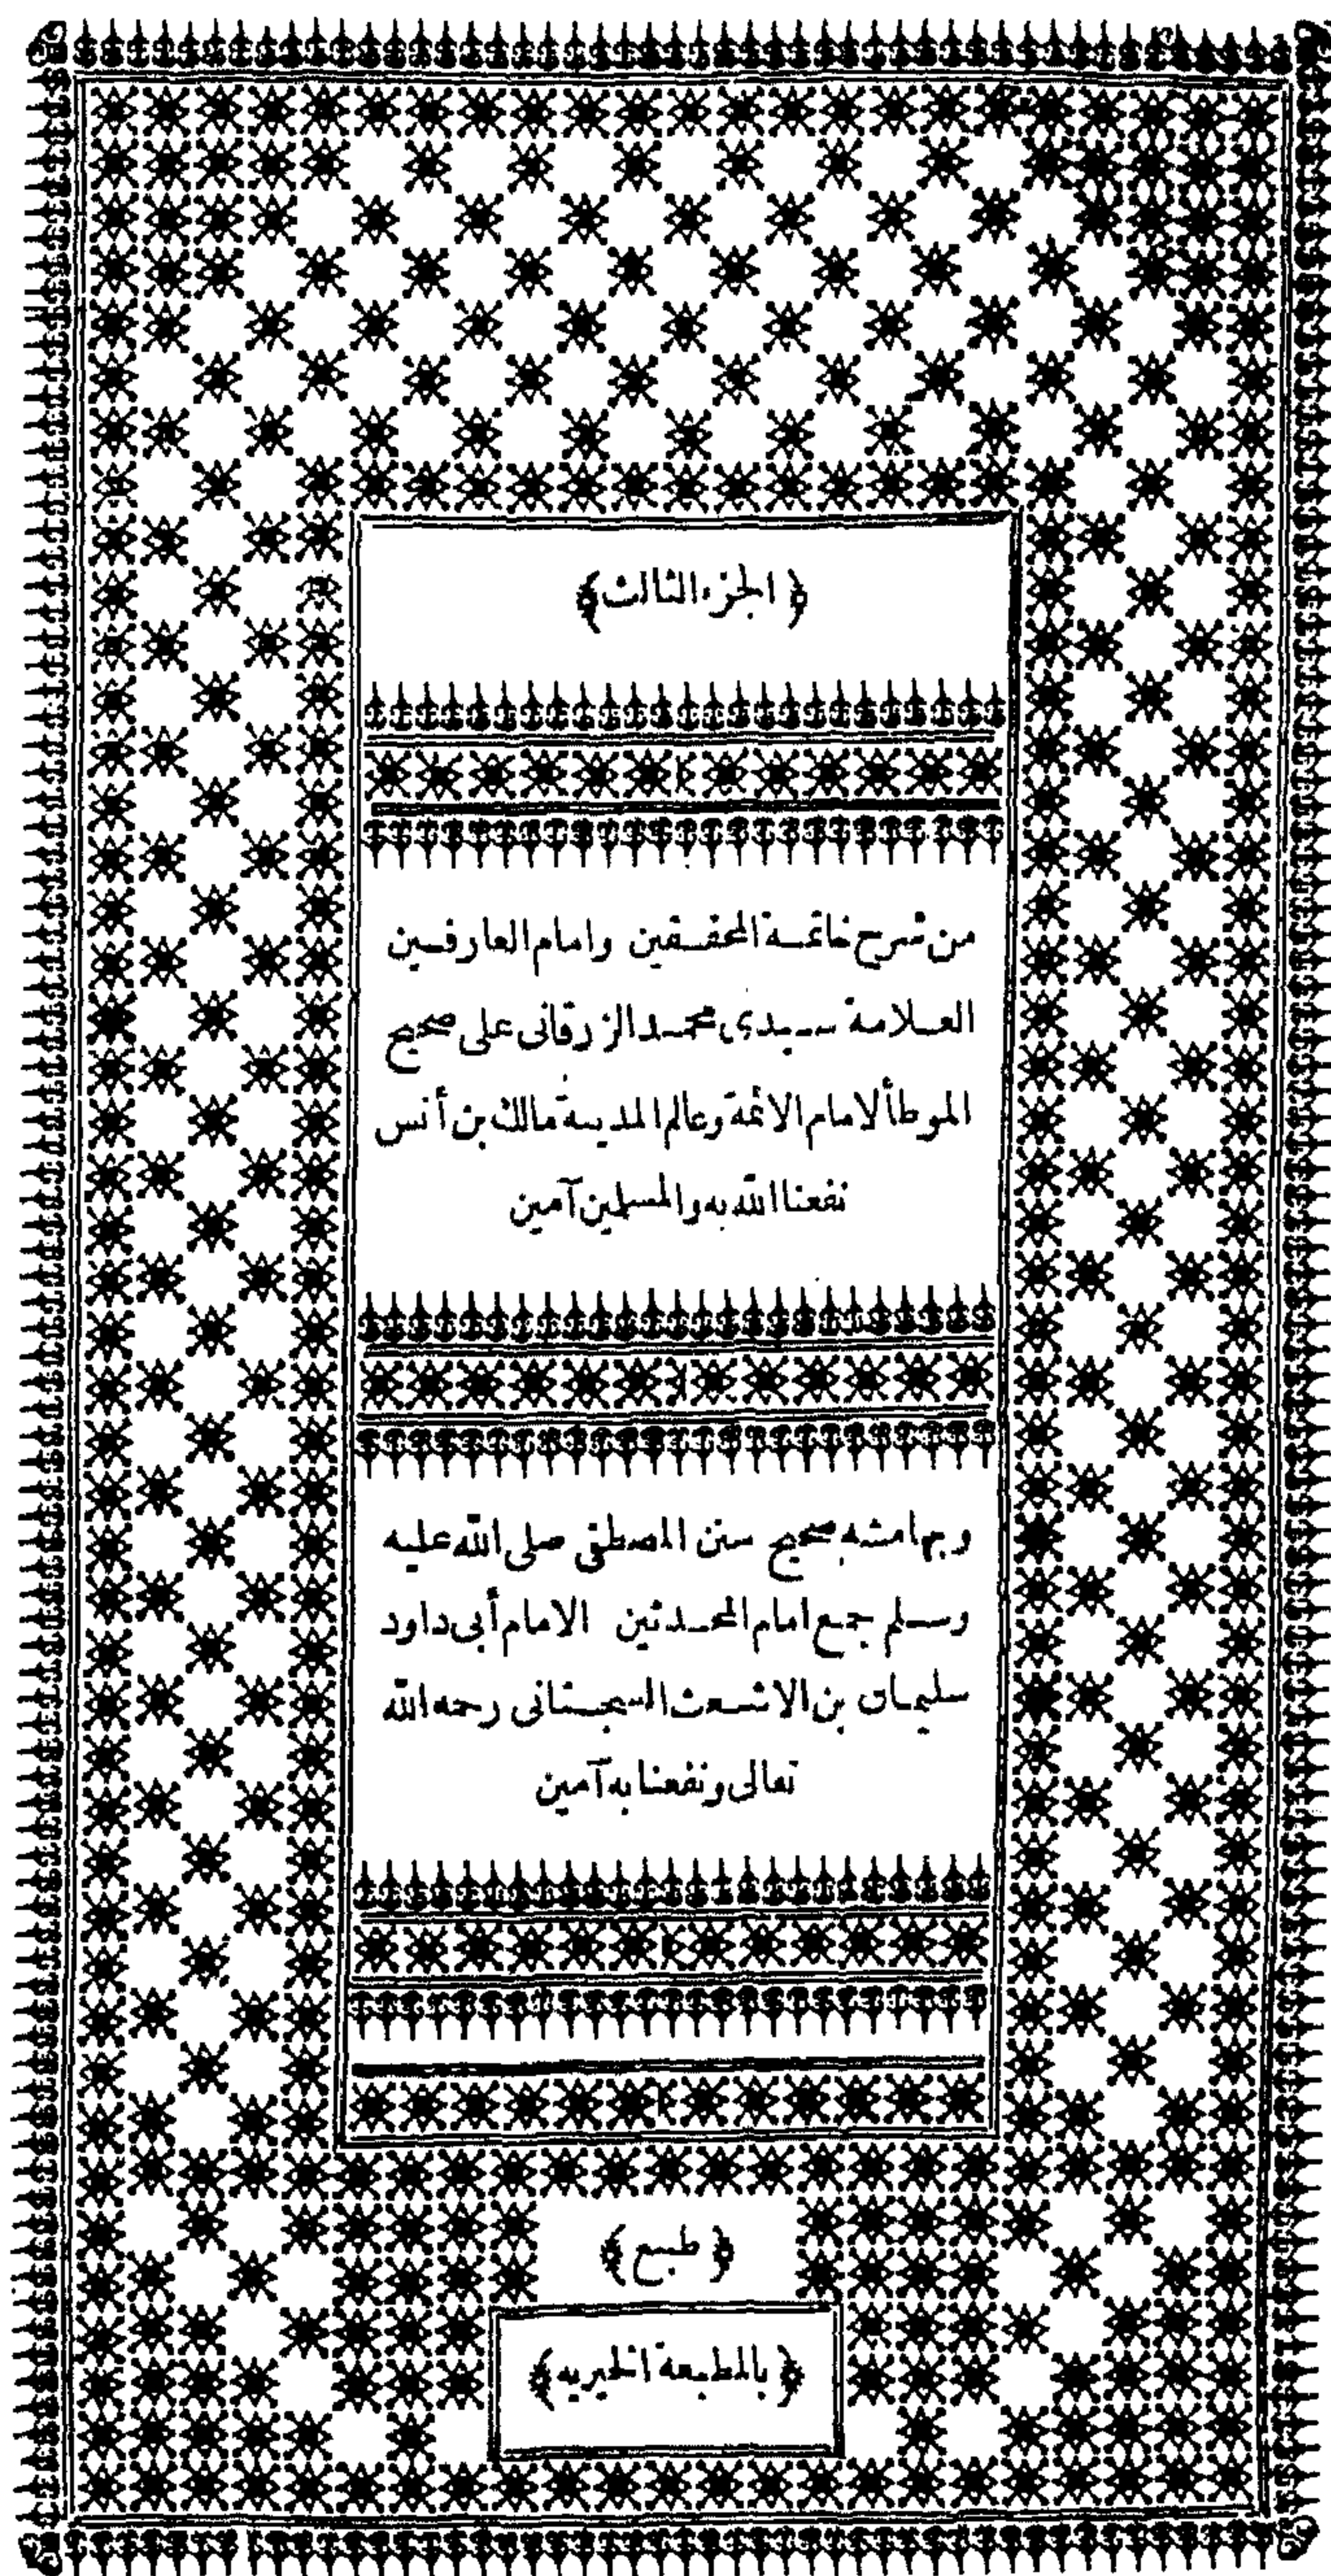 ﴿ الجزء الثالث ﴾
من شرح خاتمة المحققين وامام العارفين
العلامة سيدى محمد الزرقانى على صحيح
الموطأ لامام الائمة وعالم المدينة مالك بن أنس
نفعنا الله به والمسلمين آمين
وبهامشه صحيح سنن المصطفى صلى الله عليه
وسلم جمع امام المحدثين الامام أبى داود
سليمان بن الاشعث السجستانى رحمه الله
تعالى ونفعنا به آمين
﴿ طبع ﴾
﴿ بالمطبعة الخيريه ﴾